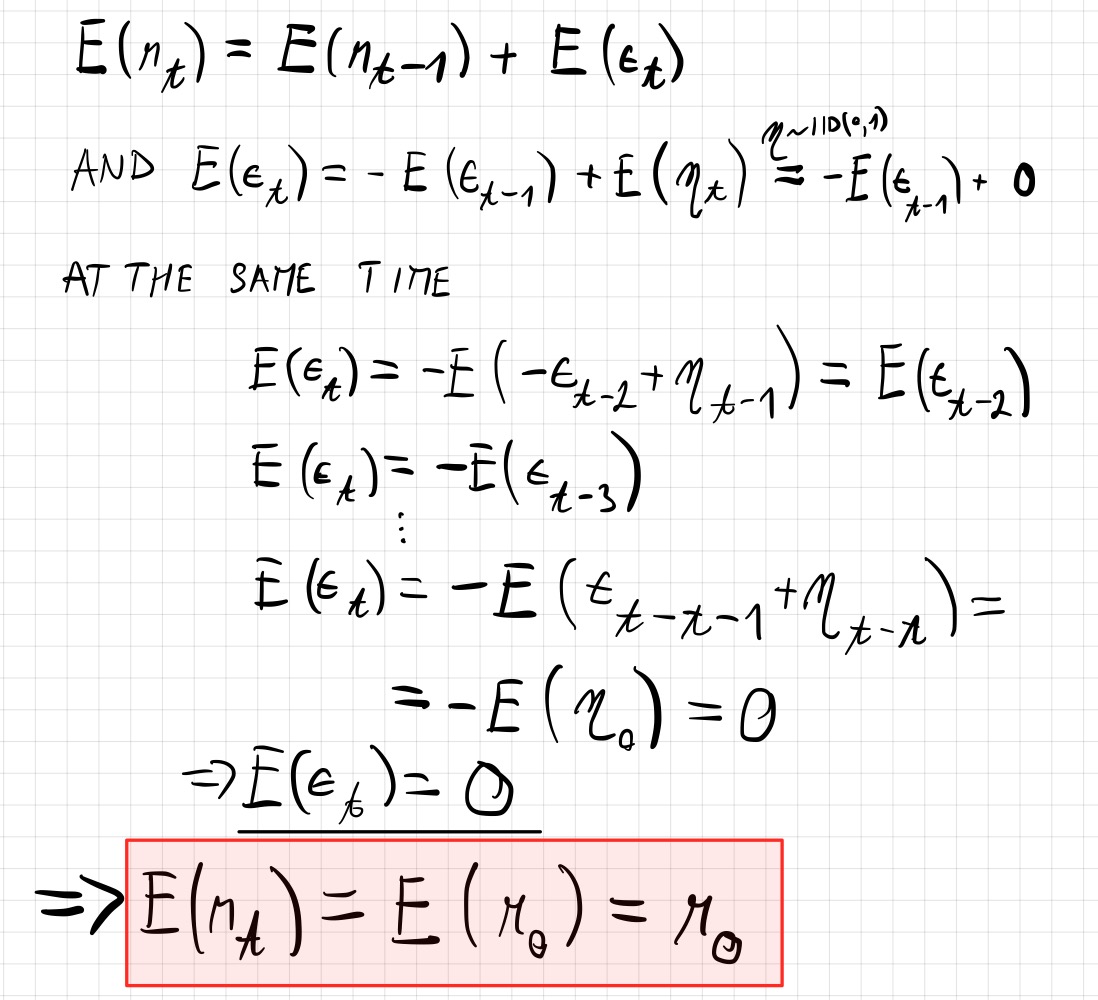 E(n_t) = E(n_{t-1}) + E(ϵ_t)
AND E(ϵ_t) = - E(ϵ_{t-1}) + E(η_t) =^{η~IID(0,1)} -E(ϵ_{t-1}) + 0
AT THE SAME TIME
E(ϵ_t) = -E(-ϵ_{t-2} + η_{t-1}) = E(ϵ_{t-2})
E(ϵ_t) = -E(ϵ_{t-3})
⋮
E(ϵ_t) = -E(ϵ_{t-t-1} + η_{t-t}) =
= -E(η_0) = 0
=> E(ϵ_t) = 0
=> E(n_t) = E(n_0) = n_0